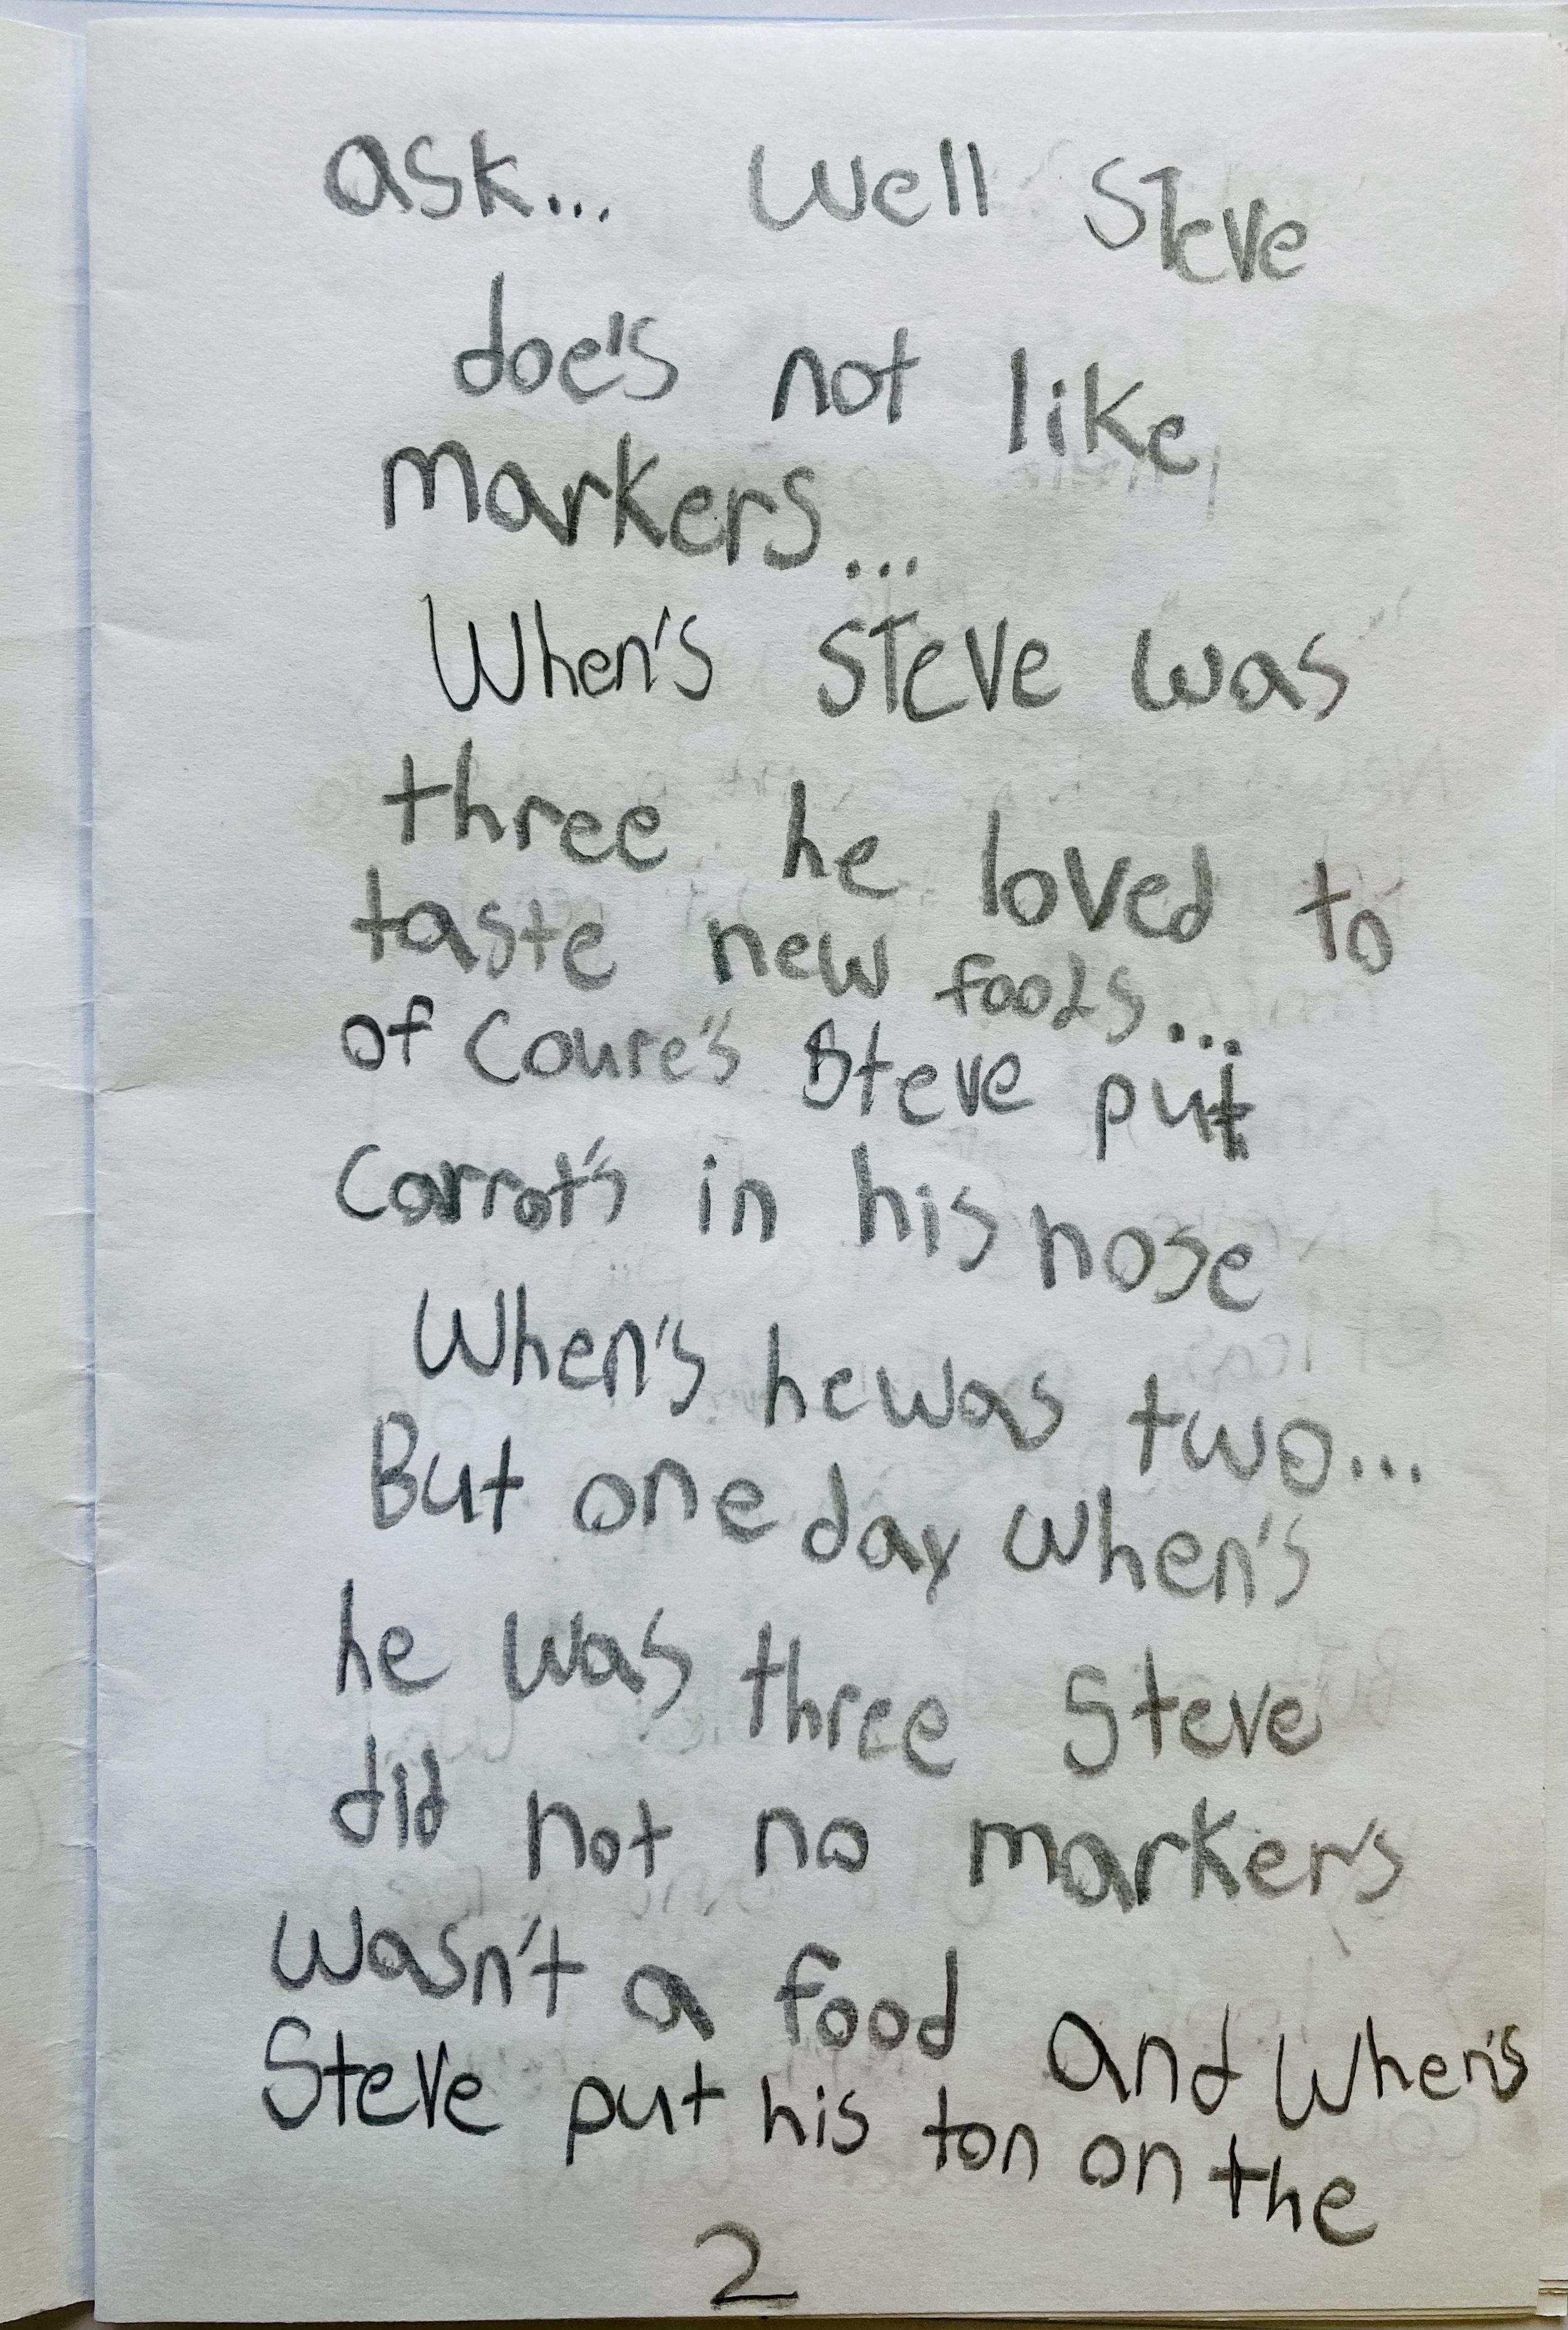 ask... Well Steve
doe's not like
markers...
When's Steve was
three he loved to
taste new foods...
of Coure's Steve put
Carrot's in his nose
When's he was two...
But one day when's
he was three Steve
did not no marker's
wasn't a food and When's
Steve put his ton on the
2